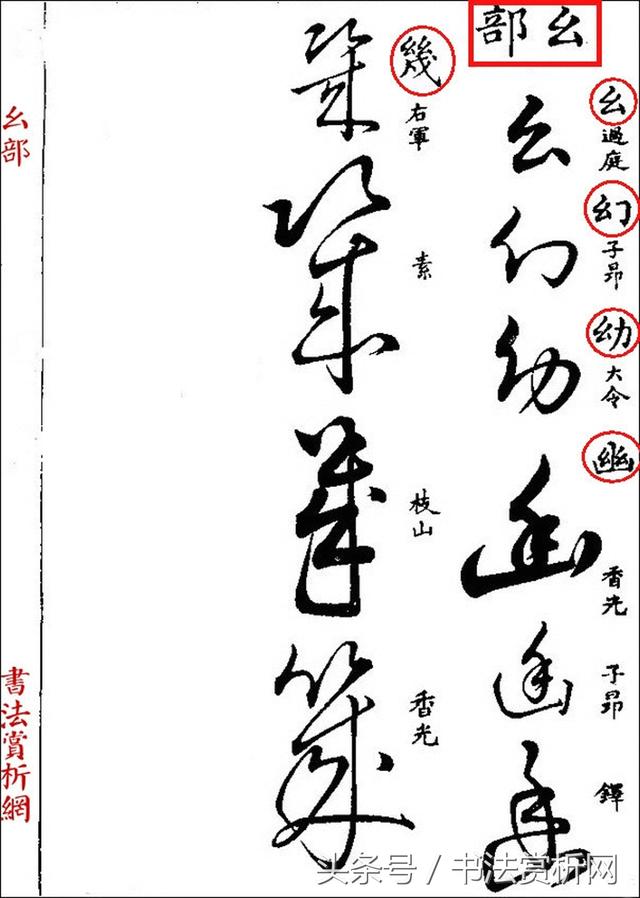 幺部
幺
過庭
幺
幻
子昂
幻
幼
大令
幼
幽
香光
幽
子昂
幽
鐸
幽
幾
右軍
幾
素
幾
枝山
幾
香光
幾
幺部
書法賞析網
头条号 / 书法赏析网